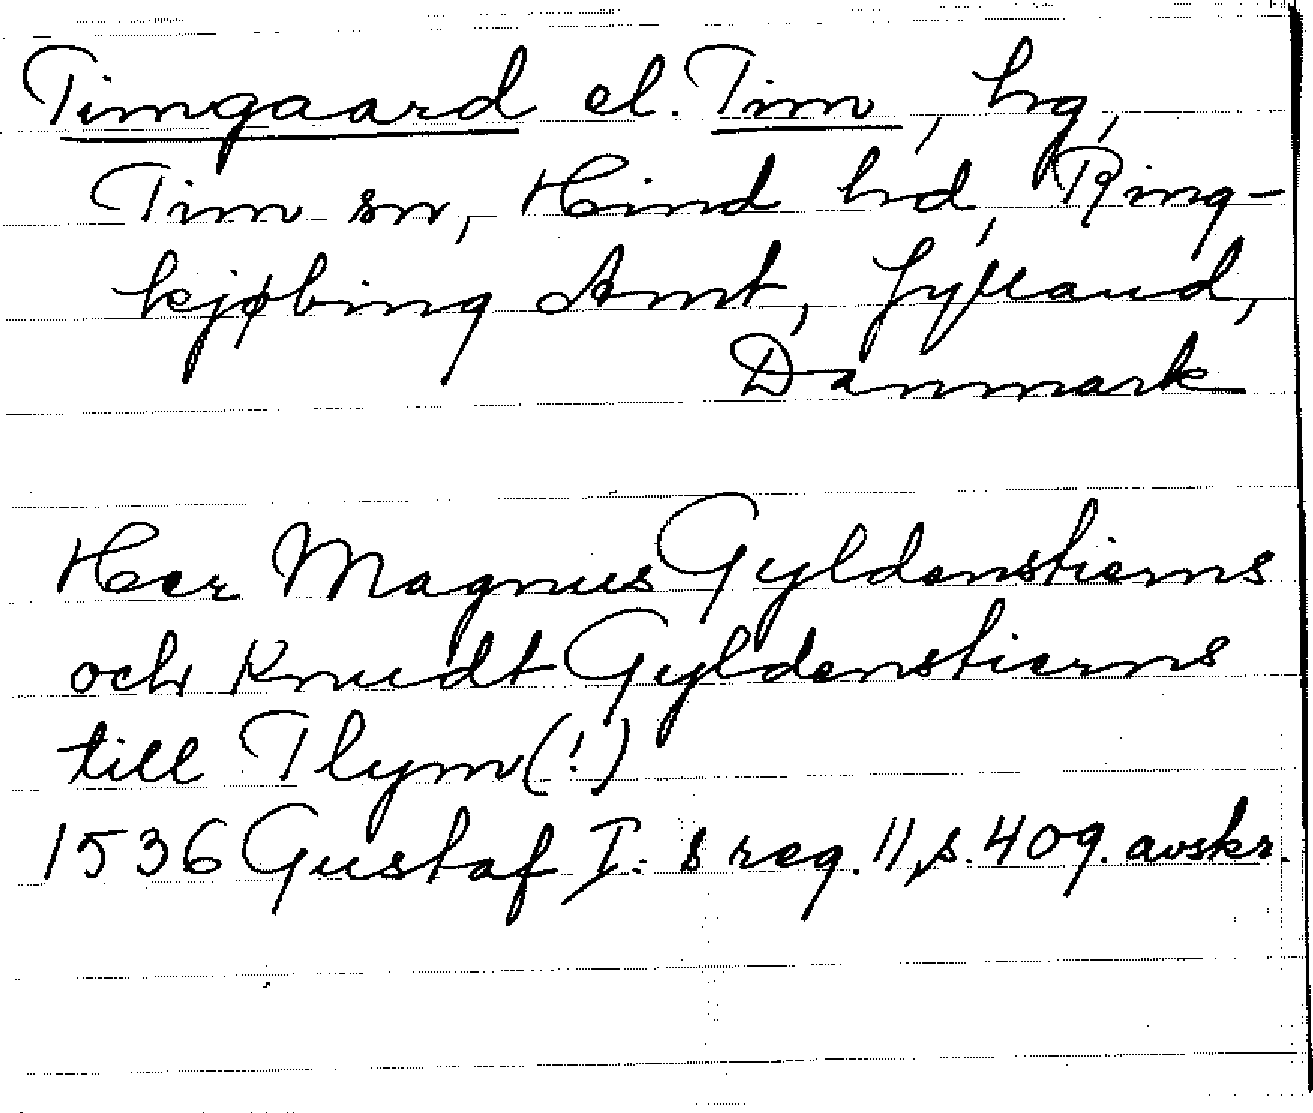 Timgaard el. Tim, hg,
Tim sn, Hind hd, Ring-
kjøbing Amt, Jylland,
Danmark
Her Magnus Gyldenstierns
och Knudt Gyldenstierns
till Tlym(!)
1536 Gustaf I:s reg. 11, s. 409. avskr.